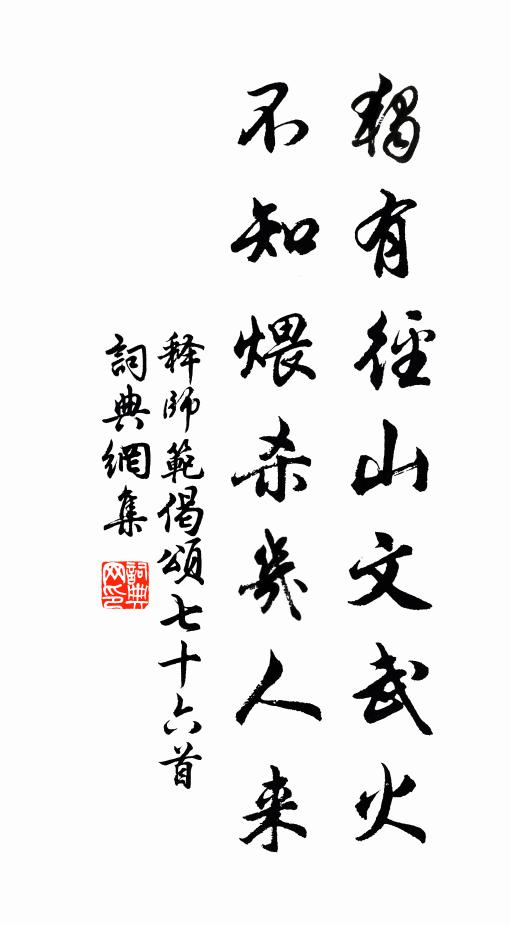 獨有徑山文武火
不知煨杀幾人来
释師範偈頌七十六首
詞典網集
詞典网印